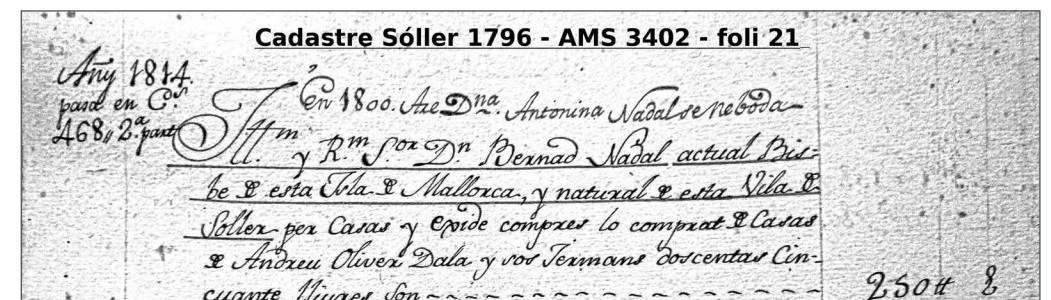 Cadastre Sóller 1796 - AMS 3402 - foli 21
Añy 1814.
pasa en C.ˢ
468,, 2.ª part
En 1800. Are Dna. Antonina Nadal se neboda
Ill.m y R.m S.or D.n Bernad Nadal actual Bis-
be de esta Isla de Mallorca, y natural de esta Vila de
Sóller per Casas y compres lo comprat de Casas
de Andreu Oliver Dala y sos Jermans doscentas Cin-
cuante lliures son
250 ₶